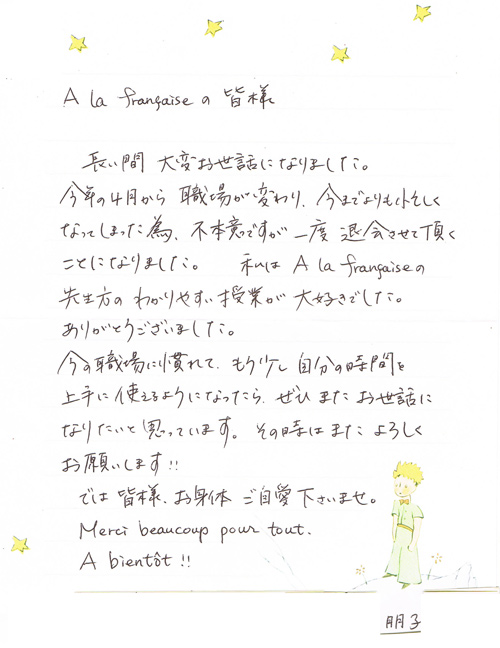 A la françaiseの皆様
長い間 大変お世話になりました。
今年の4月から 職場が変わり、今までよりも忙しく
なってしまった為、不本意ですが 一度 退会させて頂く
ことになりました。 私は A la françaiseの
先生方の わかりやすい授業が 大好きでした。
ありがとうございました。
今の職場に慣れて、もう少し 自分の時間を
上手に 使えるようになったら、ぜひ また お世話に
なりたいと思っています。その時は また よろしく
お願いします!!
では 皆様、お身体 ご自愛下さいませ。
Merci beaucoup pour tout.
A bientôt !!
朋子